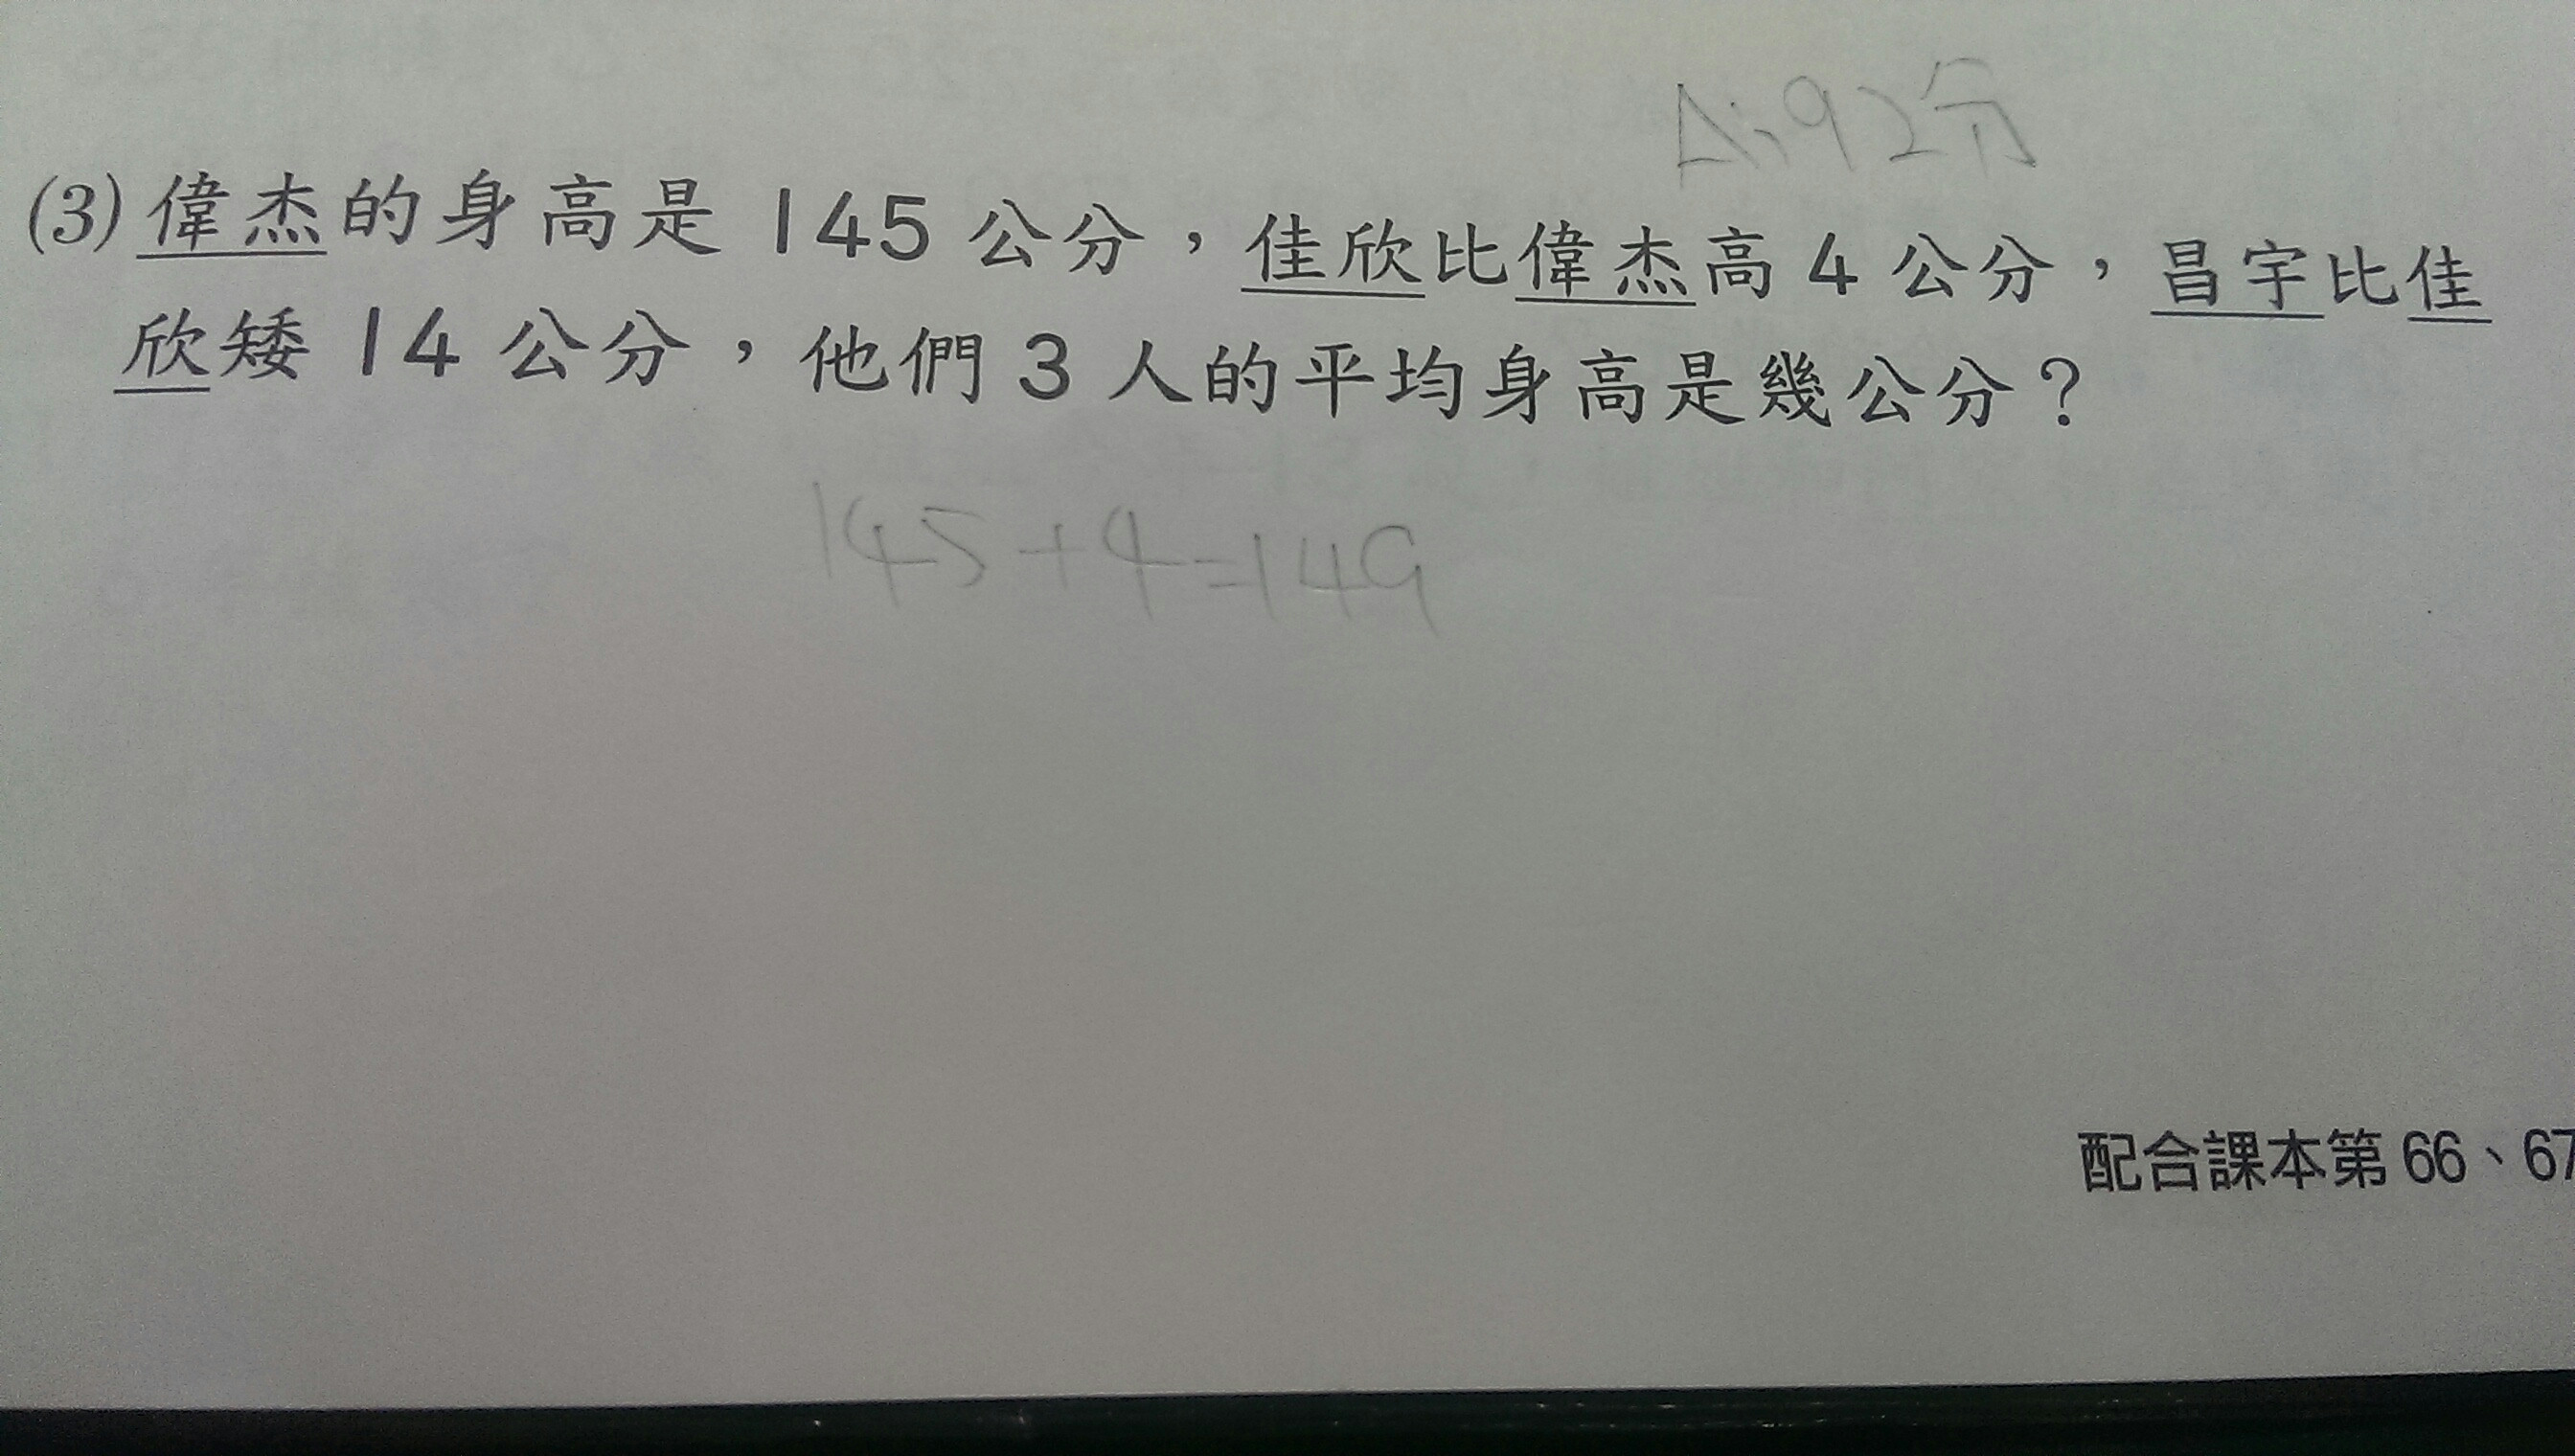 A:92分
(3)偉杰的身高是145公分，佳欣比偉杰高4公分，昌宇比佳
欣矮14公分，他們3人的平均身高是幾公分？
145+4=149
配合課本第66、67